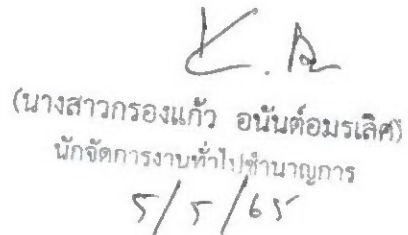 (นางสาวกรองแก้ว อนันต์อมรเลิศ)
นักจัดการงานทั่วไปชำนาญการ
5/5/65